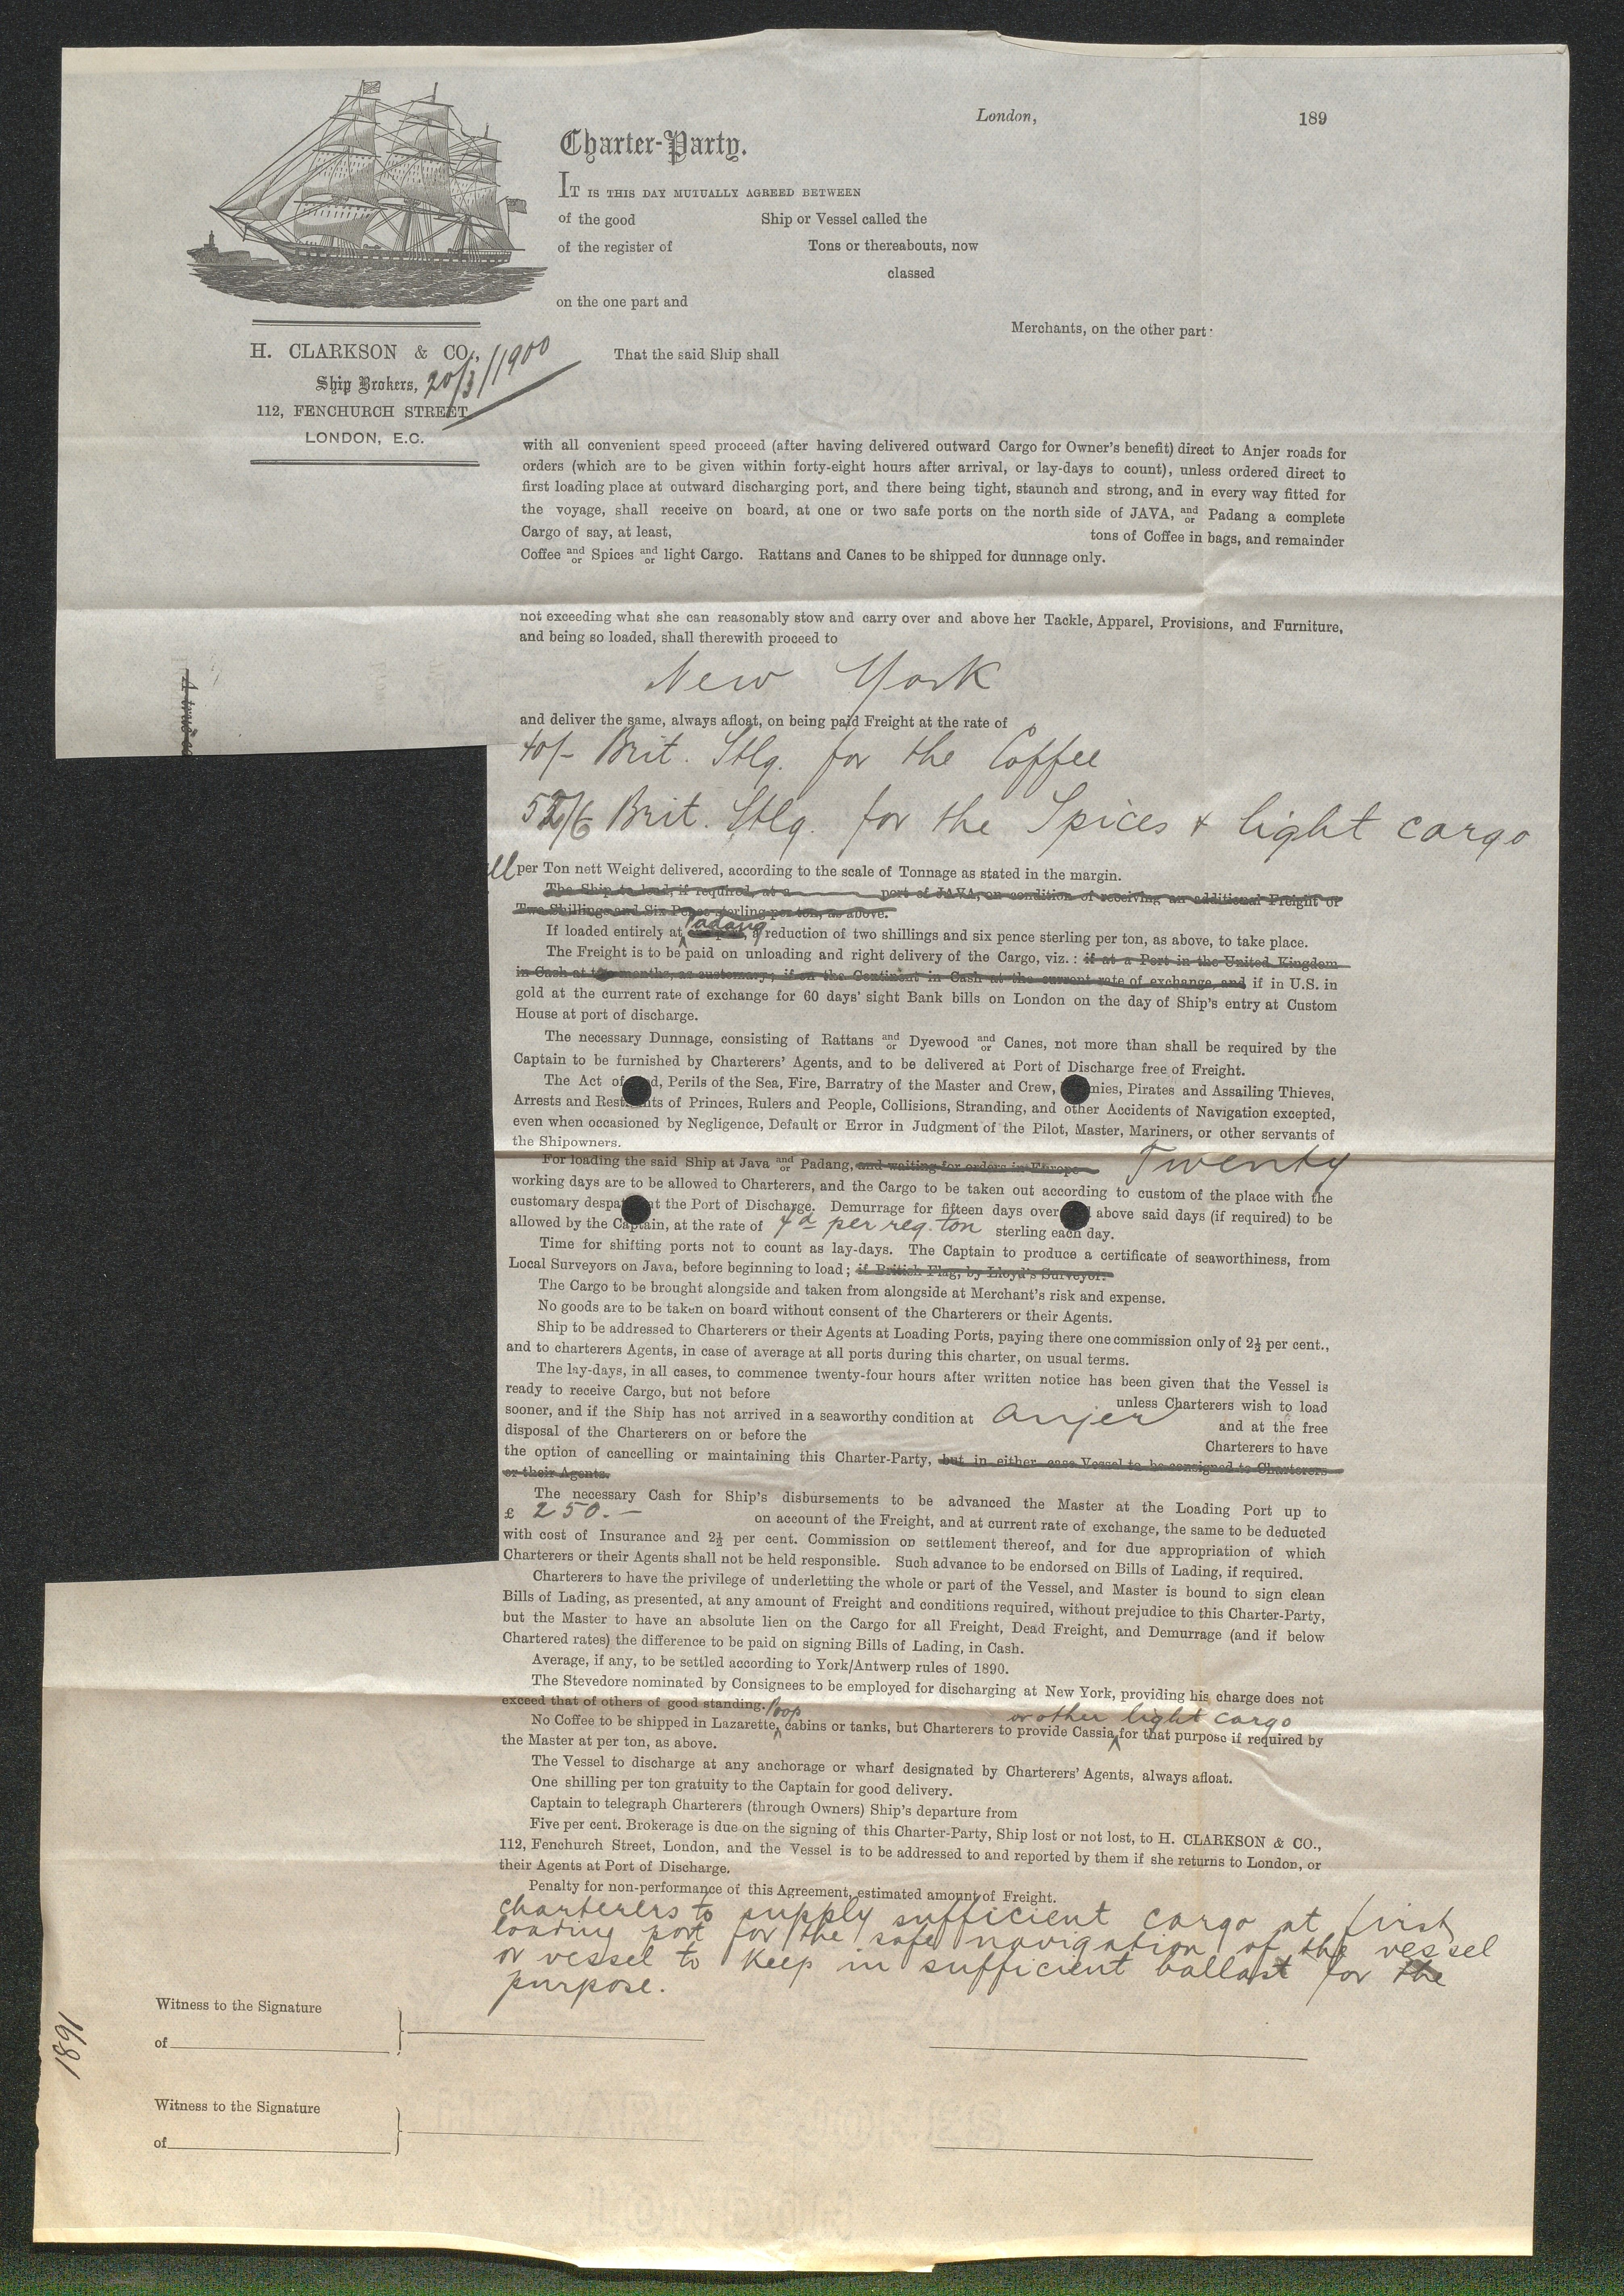 London, 189
Charter-Party.
IT IS THIS DAY MUTUALLY AGREED BETWEEN
of the good Ship or Vessel called the
of the register of Tons or thereabouts, now
classed
on the one part and
Merchants, on the other part:
H. CLARKSON & CO.,
Ship Brokers,
112, FENCHURCH STREET
LONDON, E.C.
20/3/1900
That the said Ship shall
with all convenient speed proceed (after having delivered outward Cargo for Owner's benefit) direct to Anjer roads for
orders (which are to be given within forty-eight hours after arrival, or lay-days to count), unless ordered direct to
first loading place at outward discharging port, and there being tight, staunch and strong, and in every way fitted for
the voyage, shall receive on board, at one or two safe ports on the north side of JAVA, and/or Padang a complete
Cargo of say, at least, tons of Coffee in bags, and remainder
Coffee and/or Spices and/or light Cargo. Rattans and Canes to be shipped for dunnage only.
not exceeding what she can reasonably stow and carry over and above her Tackle, Apparel, Provisions, and Furniture,
and being so loaded, shall therewith proceed to
New York
A true
and deliver the same, always afloat, on being paid Freight at the rate of
40/- Brit. Stlg. for the Coffee
52/6 Brit. Stlg. for the Spices & light cargo
all per Ton nett Weight delivered, according to the scale of Tonnage as stated in the margin.
The Ship to load, if required, at a port of JAVA, on condition of receiving an additional Freight of
Two Shillings and Six Pence sterling per ton, as above.
If loaded entirely at Padang a reduction of two shillings and six pence sterling per ton, as above, to take place.
The Freight is to be paid on unloading and right delivery of the Cargo, viz.: if at a Port in the United Kingdom
in Cash at two months, as customary; if on the Continent in Cash at the current rate of exchange, and if in U.S. in
gold at the current rate of exchange for 60 days' sight Bank bills on London on the day of Ship's entry at Custom
House at port of discharge.
The necessary Dunnage, consisting of Rattans and/or Dyewood and/or Canes, not more than shall be required by the
Captain to be furnished by Charterers' Agents, and to be delivered at Port of Discharge free of Freight.
The Act of God, Perils of the Sea, Fire, Barratry of the Master and Crew, Enemies, Pirates and Assailing Thieves,
Arrests and Restraints of Princes, Rulers and People, Collisions, Stranding, and other Accidents of Navigation excepted,
even when occasioned by Negligence, Default or Error in Judgment of the Pilot, Master, Mariners, or other servants of
the Shipowners.
For loading the said Ship at Java and/or Padang, and waiting for orders in Europe Twenty
working days are to be allowed to Charterers, and the Cargo to be taken out according to custom of the place with the
customary despatch at the Port of Discharge. Demurrage for fifteen days over and above said days (if required) to be
allowed by the Captain, at the rate of 4d per reg. ton sterling each day.
Time for shifting ports not to count as lay-days. The Captain to produce a certificate of seaworthiness, from
Local Surveyors on Java, before beginning to load; if British Flag, by Lloyd's Surveyor.
The Cargo to be brought alongside and taken from alongside at Merchant's risk and expense.
No goods are to be taken on board without consent of the Charterers or their Agents.
Ship to be addressed to Charterers or their Agents at Loading Ports, paying there one commission only of 2½ per cent.,
and to charterers Agents, in case of average at all ports during this charter, on usual terms.
The lay-days, in all cases, to commence twenty-four hours after written notice has been given that the Vessel is
ready to receive Cargo, but not before unless Charterers wish to load
sooner, and if the Ship has not arrived in a seaworthy condition at Anjer and at the free
disposal of the Charterers on or before the Charterers to have
the option of cancelling or maintaining this Charter-Party, but in either case Vessel to be consigned to Charterers
or their Agents.
The necessary Cash for Ship's disbursements to be advanced the Master at the Loading Port up to
£ 250.- on account of the Freight, and at current rate of exchange, the same to be deducted
with cost of Insurance and 2½ per cent. Commission on settlement thereof, and for due appropriation of which
Charterers or their Agents shall not be held responsible. Such advance to be endorsed on Bills of Lading, if required.
Charterers to have the privilege of underletting the whole or part of the Vessel, and Master is bound to sign clean
Bills of Lading, as presented, at any amount of Freight and conditions required, without prejudice to this Charter-Party,
but the Master to have an absolute lien on the Cargo for all Freight, Dead Freight, and Demurrage (and if below
Chartered rates) the difference to be paid on signing Bills of Lading, in Cash.
Average, if any, to be settled according to York/Antwerp rules of 1890.
The Stevedore nominated by Consignees to be employed for discharging at New York, providing his charge does not
exceed that of others of good standing.
No Coffee to be shipped in Lazarette, Poop cabins or tanks, but Charterers to provide Cassia or other light cargo for that purpose if required by
the Master at per ton, as above.
The Vessel to discharge at any anchorage or wharf designated by Charterers' Agents, always afloat.
One shilling per ton gratuity to the Captain for good delivery.
Captain to telegraph Charterers (through Owners) Ship's departure from
Five per cent. Brokerage is due on the signing of this Charter-Party, Ship lost or not lost, to H. CLARKSON & CO.,
112, Fenchurch Street, London, and the Vessel is to be addressed to and reported by them if she returns to London, or
their Agents at Port of Discharge.
Penalty for non-performance of this Agreement, estimated amount of Freight.
charterers to supply sufficient cargo at first
loading port for the safe navigation of the vessel
or vessel to keep in sufficient ballast for the
purpose.
Witness to the Signature
of
1891
Witness to the Signature
of